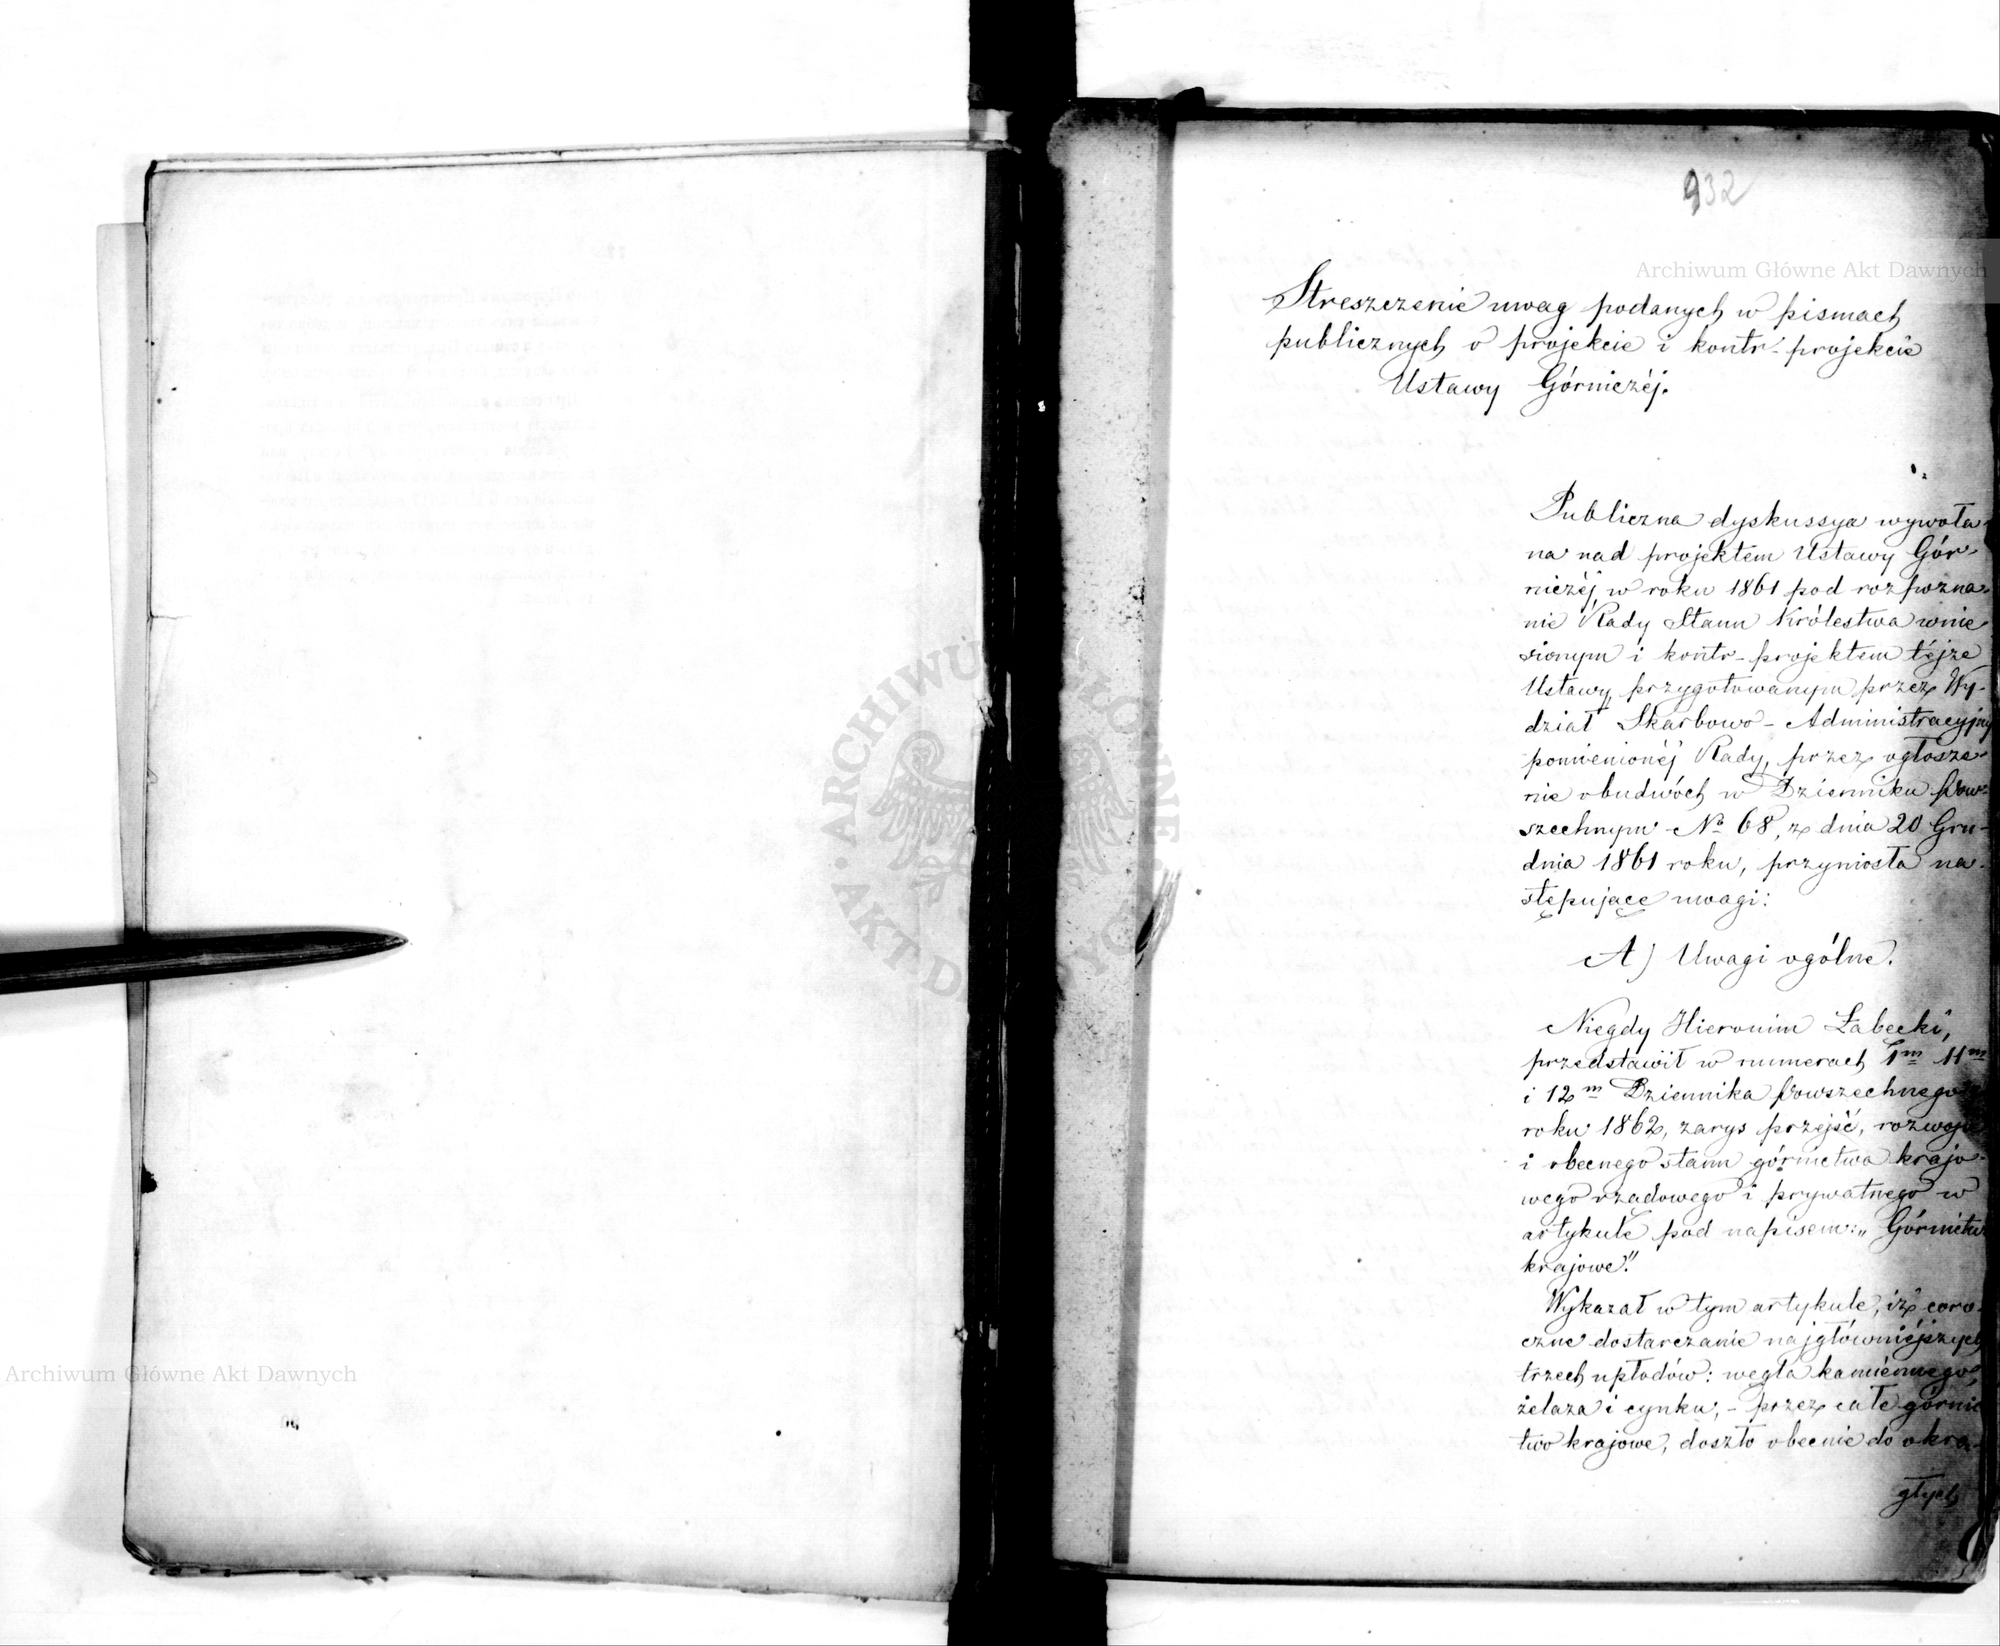 932
Streszczenie uwag podanych w pismach
publicznych o projekcie i kontr-projekcie
Ustawy Górniczéj.
Publiczna dyskussya wywoła-
na nad projektem Ustawy Gór-
niczéj, w roku 1861 pod rozpozna-
nie Rady Stanu Królestwa wnie-
sionym i kontr-projektem téjże
Ustawy, przygotowanym przez Wy-
dział Skarbowo-Administracyjny
pomienionéj Rady, przez ogłosze-
nie obudwóch w Dzienniku Pow-
szechnym No 68, z dnia 20 Gru-
dnia 1861 roku, przyniosła na-
stępujące uwagi:
A) Uwagi ogólne.
Niegdy Hieronim Łabęcki,
przedstawił w numerach 11m
i 12m Dziennika Powszechnego
roku 1862, zarys przejść, rozwoju
i obecnego stanu górnictwa krajo-
wego rządowego i prywatnego w
artykule pod napisem: „Górnictwo
krajowe."
Wykazał w tym artykule, iż coro-
czne dostarczanie najgłówniéjszych
trzech upłodów: węgla kamiennego,
żelaza i cynku, - przez całe górnic-
two krajowe, doszło obecnie do okrą-
głych
Archiwum Główne Akt Dawnych
Archiwum Główne Akt Dawnych
ARCHIWUM GŁÓWNE AKT DAWNYCH